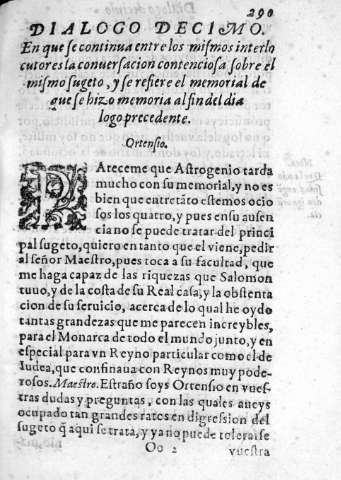 290
DIALOGO DECIMO.
En que se continua entre los mismos interlo
cutores la conuersacion contenciosa sobre el
mismo sugeto, y se refiere el memorial de
que se hizo memoria al fin del dia
logo precedente.
Ortensio.
PAreceme que Astrogenio tarda
mucho con su memorial, y no es
bien que entretãto estemos ocio
sos los quatro, y pues en su ausen
cia no se puede tratar del princi
pal sugeto, quiero en tanto que el viene, pedir
al señor Maestro, pues toca a su facultad, que
me haga capaz de las riquezas que Salomon
tuuo, y de la costa de su Real casa, y la obstenta
cion de su seruicio, acerca de lo qual he oydo
tantas grandezas que me parecen increybles,
para el Monarca de todo el mundo junto, y en
especial para vn Reyno particular como el de
Iudea, que confinaua con Reynos muy pode-
rosos. Maestro. Estraño soys Ortensio en vues-
tras dudas y preguntas, con las quales aueys
ocupado tan grandes ratos en digression del
sugeto q̃ aqui se trata, y ya no puede tolerarse
Oo 2 vuestra